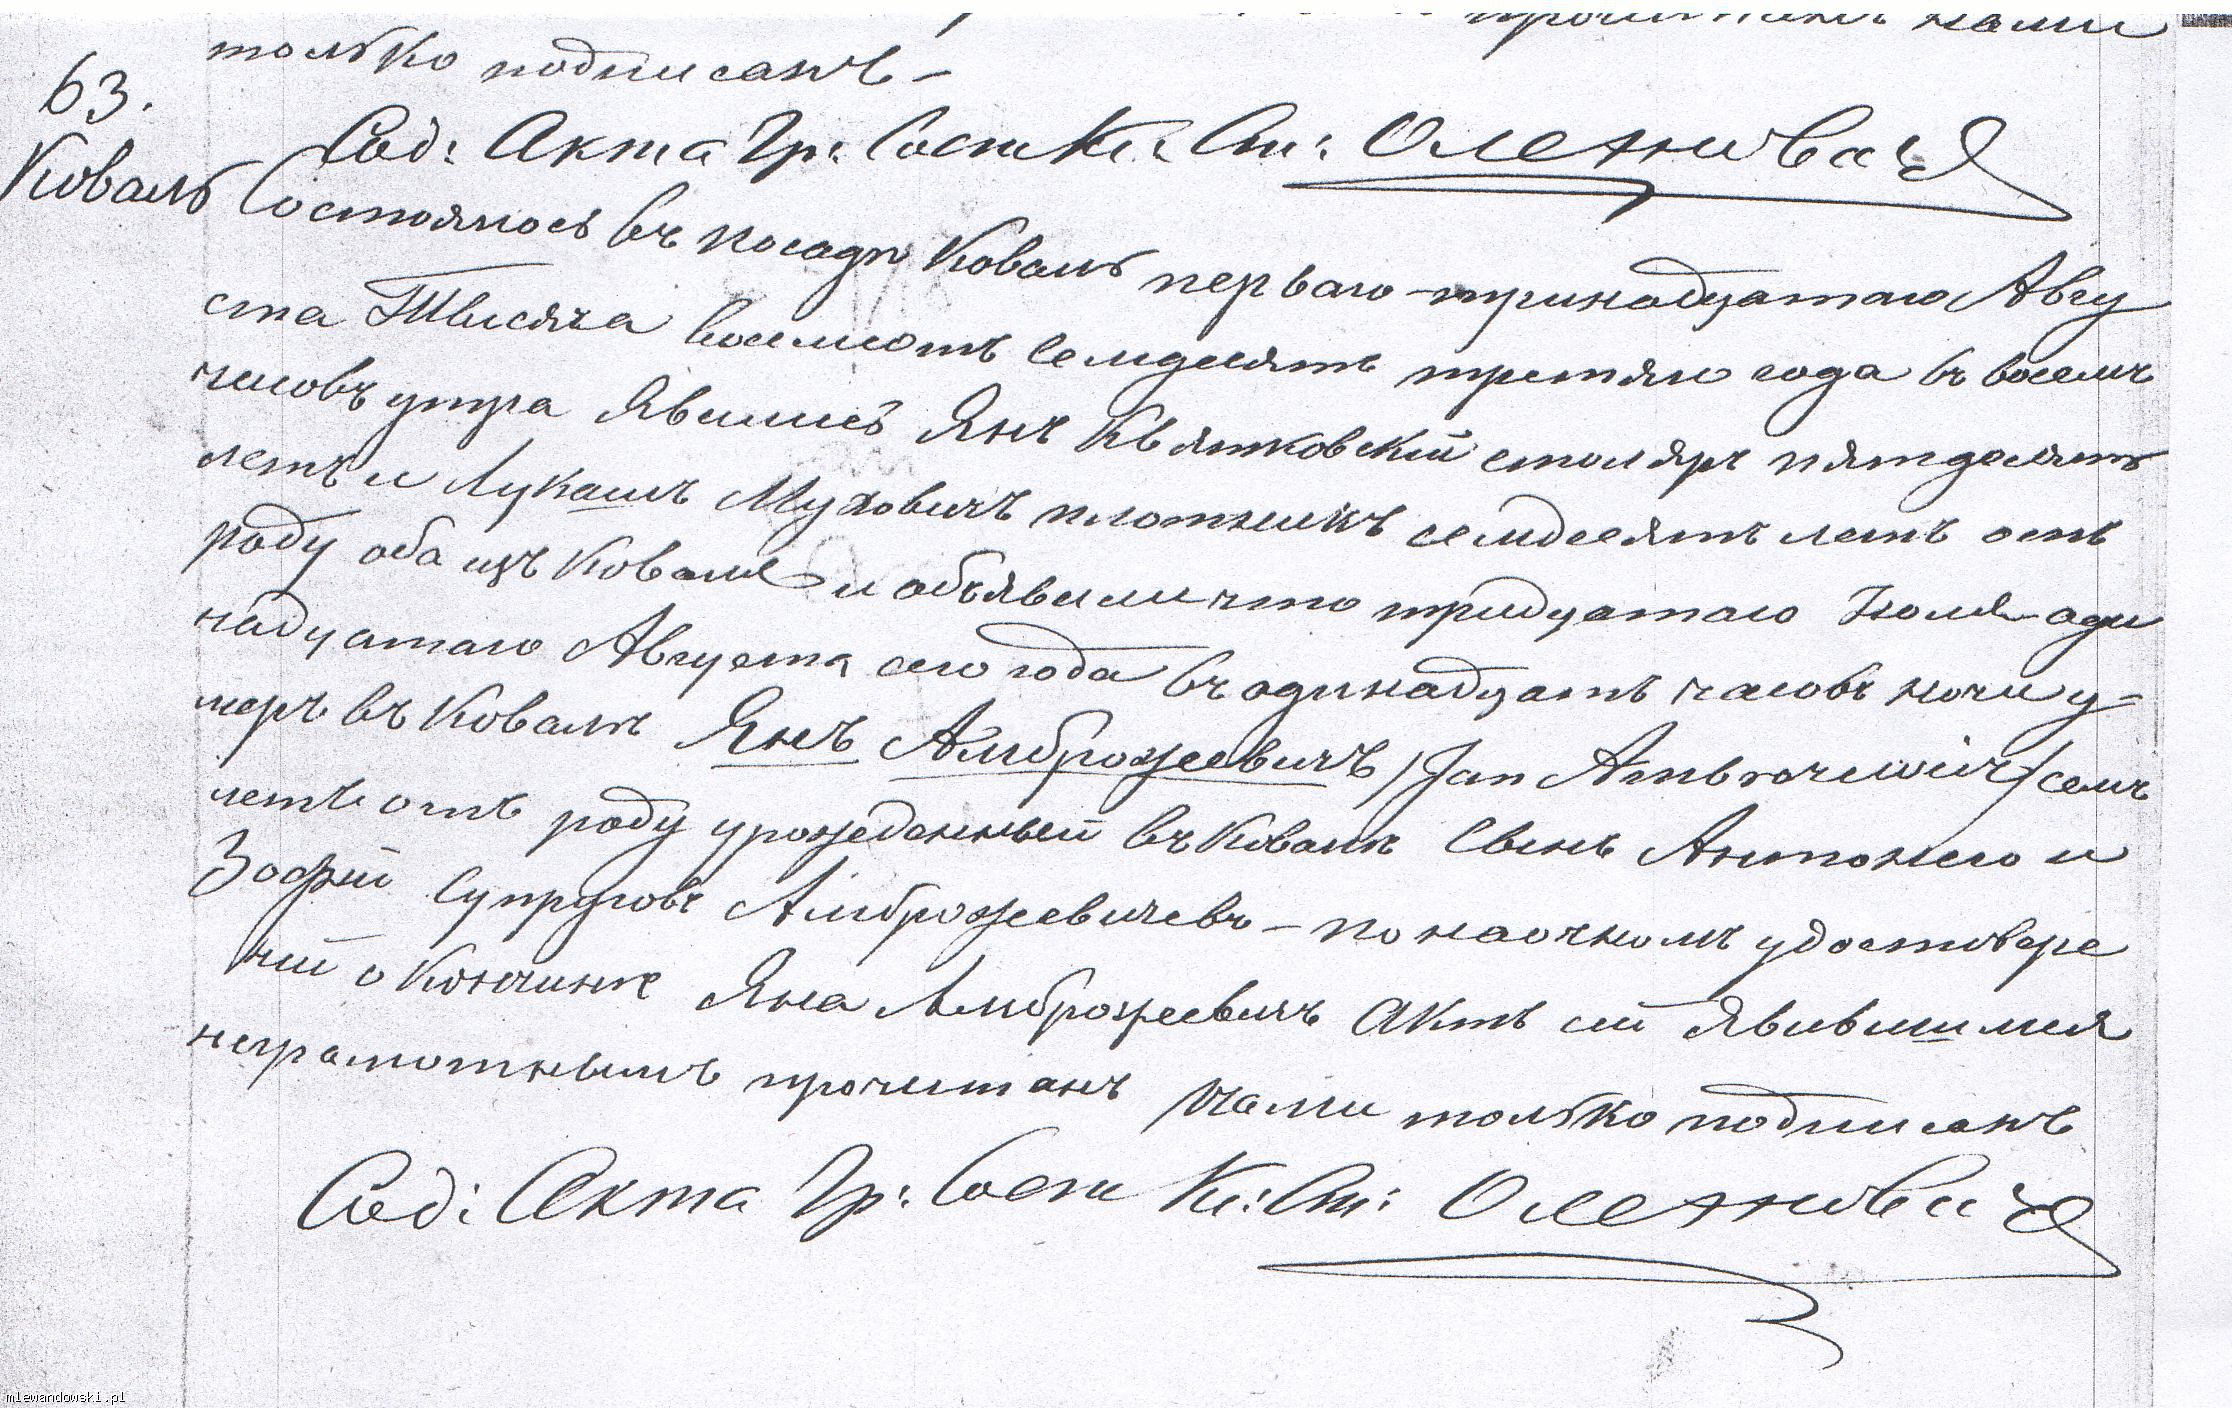 прочитанъ нами
только подписанъ –
63.
Сод: Акта Гр: Сост Кс: Ст:
Коваль Состоялось въ посадѣ Коваль перваго – тринадцатаго Авгу
ста Тысяча восемсотъ семдесятъ третяго года въ восемъ
часовъ утра Явились Янъ Квятковскій столяръ пятдесятъ
летъ и Лукашъ Муховичъ плотникъ семдесятъ летъ отъ
роду оба изъ Коваля и объявили что тридцатаго Юля – оди
надцатаго Августа сего года въ одинадцатъ часовъ ночи у=
меръ въ Ковалѣ Янъ Амброжеевичъ /Jan Ambrozewicz/ семъ
летъ отъ роду урожденный въ Ковалѣ Сынъ Антонего и
Зофіи Супруговъ Амброжевичевъ – По наочномъ удостовере
ній о Кончинѣ Яна Амброжеевичъ Актъ сій Явившимся
неграмотнымъ прочитанъ Нами только подписанъ
Сод: Акта Гр: Сост Кс: Ст:
mlewandowski.pl